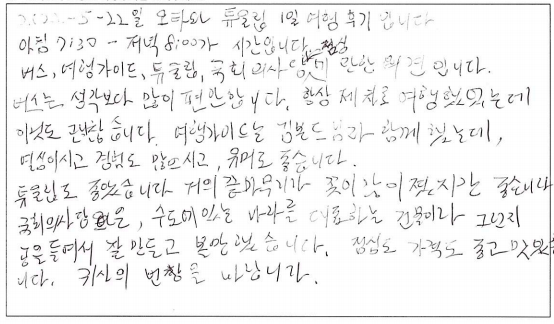 2022-5-22일 오타와 튤울립 1일 여행 후기 입니다
아침 7:30 - 저녁 8:00가 시간입니다. 점심
버스, 여행가이드, 튤울립, 국회의사당에 관한 의견입니다.
버스는 생각보다 많이 편안합니다. 항상 제 차로 여행했었는데
이것도 괜찮습니다. 여행가이드는 님과 함께 했는데,
열심이시고 경험도 많으시고, 유머도 좋습니다.
튤울립도 좋았습니다 거의 끝마무기가 꽃이 많이 졌지만 좋습니다
국회의사당은, 수도에 있는 나라를 대표하는 건물이라 그런지
공을들여서 잘 만들고 볼만했습니다. 점심도 가격도 좋고 맛있습
니다. 회사의 번창을 바랍니다.